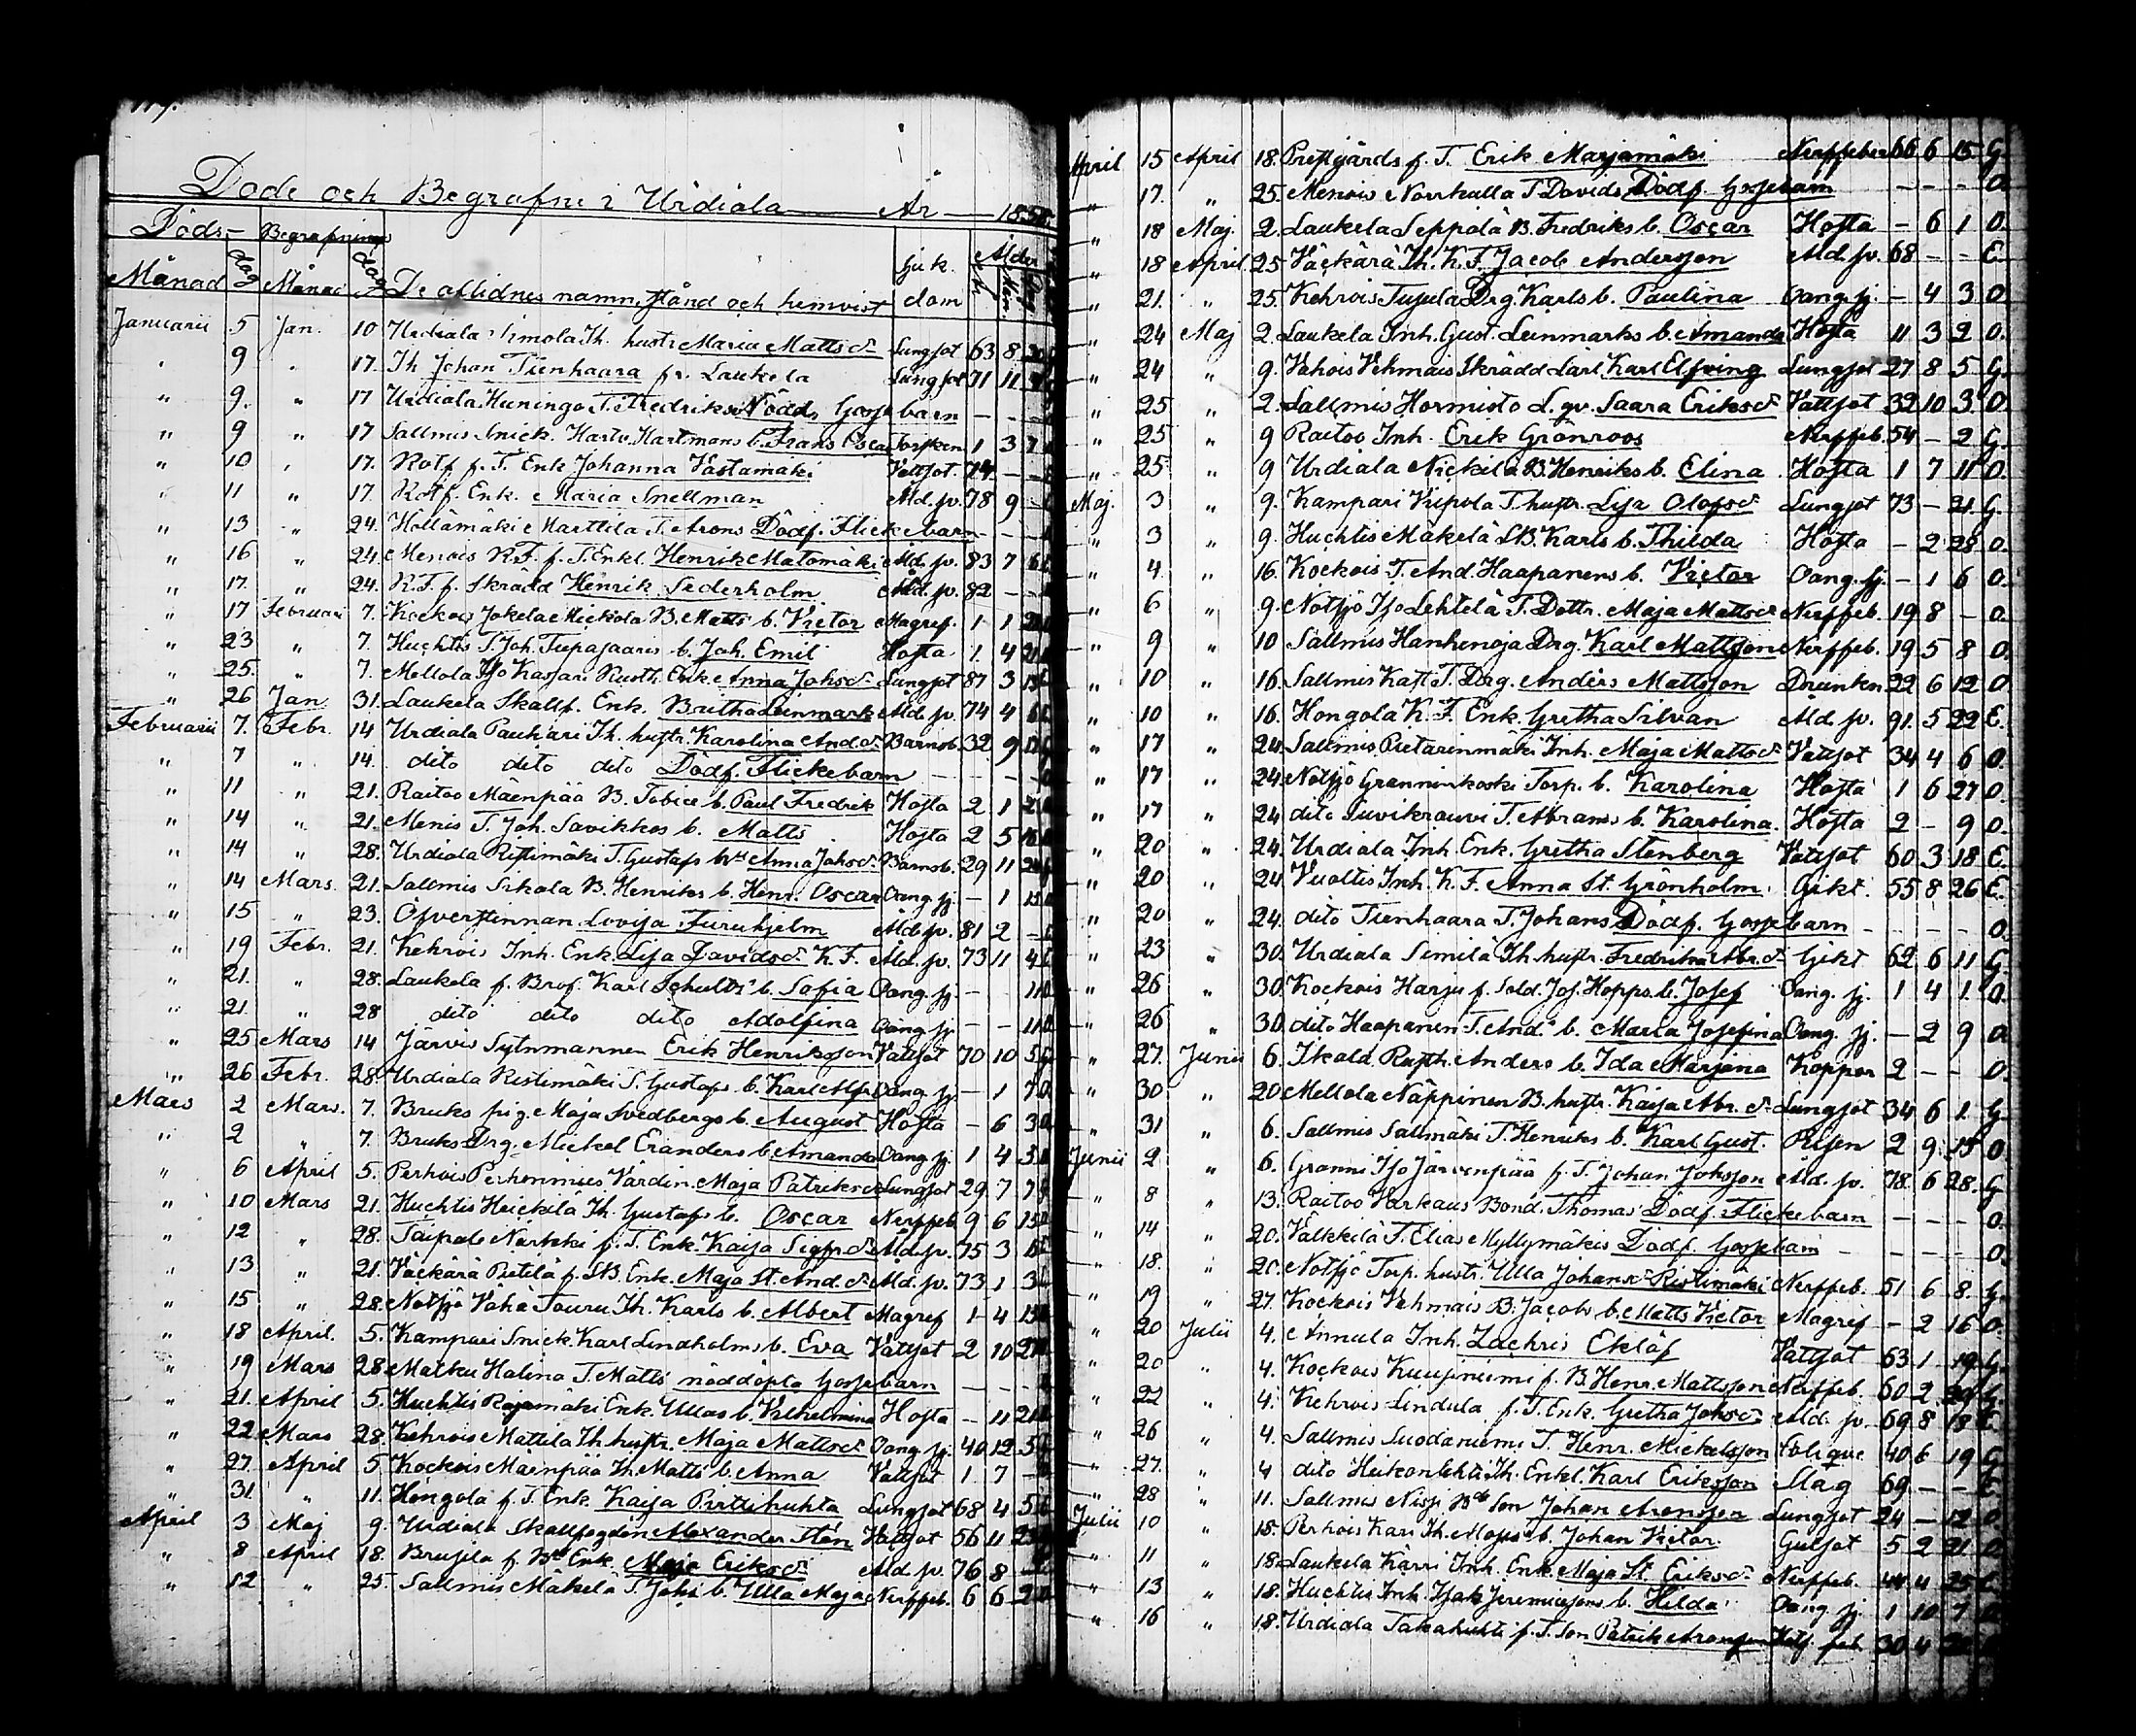 Döde och Begrafne i Urdiala År 185
Döds- Begrafnings
Månad dag Månad dag De aflidnes namn, stånd och hemvist Sjukdom Ålder
Januarii 5 Jan. 10 Urdiala Simola Th. hustr. Maria Mattsdr Lungsot 63 8
" 9 " 17. Th Johan Tienhaara fr. Laukela Lungsot 71 11
" 9. " 17 Urdiala Huningo T. Fredriks Nödd. Gossebarn — —
" 9 " 17 Sallmis Snick. Hartmans b. Frans Oscar Torsken 1 3 7
" 10 " 17. Rotf. f. T. Enk Johanna Vastamäki Vattsot. 74 — —
" 11 " 17. Rotf. Enk. Maria Snellman Åld. sv. 78 9 —
" 13 " 24. Hollämäki Marttila T. Arons Dödf. Flickebarn — —
" 16 " 24. Menois R.F. f. T. Enkl. Henrik Matomäki Åld. sv. 83 7 6
" 17. " 24. R.F. f. Skrädd Henrik Sederholm Åld. sv. 82 — —
" 17 Februari 7. Kockois Jokela Mickola B. Matts b. Victor Magref. 1 1
" 23 " 7. Huchtis T. Joh. Tiepasaaris b. Joh. Emil Hosta 1. 4
" 25. " 7. Mellola Iso Kassari Rusth. Enk. Anna Johsdr Lungsot 87 3
" 26 Jan 31. Laukela Skallf. Enk. Britha Leinmark Åld. sv. 74 4 6
Februarii 7. Febr. 14 Urdiala Pauhari Th. hustr. Karolina Anddr Barnsb. 32 9
" 7 " 14. dito dito dito Dödf. Flickebarn — — —
" 11 " 21. Raitoo Mäenpää B. Tobias b. Paul Fredrik Hosta 2 1
" 14 " 21. Menis T. Joh. Savikkos b. Matts Hosta 2 5
" 14 " 28. Urdiala Ristimäki T. Gustafs hu Anna Johsdr Barnsb. 29 11
" 14 Mars. 21. Sallmis Sikala B. Henriks b. Henr. Oscar Oang. sj. — 1
" 15 " 23. Öfverstinnan Lovisa Furuhjelm Åld. sv. 81 2 —
" 19 Febr. 21. Kehrois Inh. Enk Lisa Davidsdr K.F. Åld. sv. 73 11 4
" 21. " 28. Laukela f. Brof. Karl Schultz' b. Sofia Oang. sj. — — 11
" 21. " 28 dito dito dito Adolfina Oang. sj. — — 11
" 25 Mars 14 Järvis Sytnmannen Erik Henriksson Vattsot 70 10 5
" 26 Febr. 28. Urdiala Ristimäki T. Gustafs b. Karl Alfr. Oang. sj. — 1 7
Mars 2 Mars. 7. Bruks pig. Maja Svedbergs b. August Hosta — 6 3
" 2 " 7. Bruks Drg. Mickel Eranders b. Amanda Oang. sj. 1 4 3
" 6 April 5. Perhois Perhonmies Värdin. Maja Patriksdr Lungsot 29 7 7
" 10 Mars 21. Huchtis Heickilä Th. Gustafs b. Oscar Nerffeb. 9 6
" 12 " 28. Taipale Närkki f. T. Enk. Kaisa Sigfr.dr Åld. sv. 75 3
" 13 " 21. Väckärä Pietilä f. SB. Enk. Maja St. And.dr Åld. sv. 73 1 3
" 15 " 28. Notsjö Vähä Touru Th. Karls b. Albert Magref 1 4
" 18 April. 5. Kampari Snick. Karl Lindholms b. Eva Vattsot 2 10
" 19 Mars 28 Matku Halina T. Matts nöddöpta Gossebarn — — —
" 21. April 5. Huchtis Rajamäki Enk. Ullas b. Vilhelmina Hosta — 11
" 22 Mars 28. Kehrois Mattila Th. hustr. Maja Mattsdr Oang. sj. 40 12 5
" 27. April 5 Kockois Mäenpää Th. Matts b. Anna Vattsot 1 7 —
" 31. " 11. Hongola f. T. Enk. Kaisa Pirttihuhta Lungsot 68 4 5
April 3 Maj 9. Urdiala Skallfogden Alexander Stén Vattsot 56 11
" 8 April 18. Brusila f. Bd Enk. Maja Eriksdr Åld. sv. 76 8 —
" 12 " 25. Sallmis Mäkelä T. Johs b. Ulla Maja Nerffeb. 6 6 2
April 15 April 18. Prestgårds f. T. Erik Marjamäki Nerffeber 66 6 15 G.
" 17. " 25. Menois Norrkulla T. Davids Dödf. Gossebarn — — — O
" 18 Maj. 2. Laukela Seppälä B. Fredriks b. Oscar Hosta — 6 1 O.
" 18 April 25 Väckärä Th. K.F. Jacob Andersson Åld. sv. 68 — — E.
" 21. " 25. Kehrois Tujula Drg Karls b. Paulina Oang. sj. — 4 3 O
" 24 Maj 2. Laukela Inh. Gust. Leinmarks b. Amanda Hosta 11 3 2 O.
" 24 " 9. Vahois Vehmais Skrädd Lärl. Karl Elfving Lungsot 27 8 5 G.
" 25 " 2. Sallmis Hormisto L. gv. Saara Eriksdr Vattsot 32 10 3 O.
" 25 " 9 Raitoo Inh. Erik Grönroos Nerffeb. 54 — 2 G.
" 25 " 9 Urdiala Nickilä B. Henriks b. Elina Hosta 1 7 11 O.
Maj. 3 " 9. Kampari Viipola T. hustr. Lisa Olofsdr Lungsot 73 — 21. G.
" 3 " 9. Huchtis Mäkelä SB. Karls b. Thilda Hosta — 2 28 O.
" 4. " 16. Kockois T. And. Haapanens b. Victor Oang. sj. — 1 6 O.
" 6 " 9. Notsjö Iso Lehtelä T. Dottr. Maja Mattsdr Nerffeb. 19 8 — O.
" 9 " 10 Sallmis Hankenoja Drg. Karl Mattsson Nerffeb. 19 5 8 O.
" 10 " 16. Sallmis Kast T. Drg. Anders Mattsson Drunkn 22 6 12 O
" 10 " 16. Hongola K.F. Enk. Gretha Silvan Åld. sv. 91. 5 22 E.
" 17 " 24. Sallmis Pietarinmäki Inh. Maja Mattsdr Vattsot 34 4 6 O.
" 17 " 24. Notsjö Granninkoski Torp. b. Karolina Hosta 1 6 27 O.
" 17 " 24 dito Tuvikrauvi T. Abrams b. Karolina. Hosta 2 — 9 O.
" 20 " 24. Urdiala Inh. Enk. Gretha Stenberg Vattsot 60 3 18 E.
" 20 " 24. Vuoltis Inh. K.F. Anna St. Grönholm. Gikt. 55 8 26 E.
" 20 " 24. dito Tienhaara T. Johans Dödf. Gossebarn — — — O.
" 23 " 30. Urdiala Simila Th. hustr. Fredrika Abr.dr Gikt 62. 6 11 G.
" 26 " 30. Kockois Harju f. Sold. Jos. Hopps b. Josef Oang. sj. 1 4 1. O.
" 26 " 30. dito Haapanen T. And.s b. Maria Josefina Oang. sj. — 2 9 O
" 27. Junii 6. Ikala Rusth. Anders b. Ida Mariana Koppor 2 — — O.
" 30 " 20 Mellola Näppinen B. hustr. Kaisa Abr. dr Lungsot 34 6 1. G.
" 31 " 6. Sallmis Sallmäki T. Henriks b. Karl Gust. Risen 2 9. 15 O.
Junii 2 " 6. Granni Iso Järvenpää f. T. Johan Johsson Åld. sv. 78. 6 28. G
" 8 " 13. Raitoo Varkaus Bond. Thomas Dödf. Flickebarn — — — O.
" 14 " 20. Valkkilä T. Elias Myllymäkis Dödf. Gossebarn — — — O.
" 18. " 20. Notsjö Torp. hustr. Ulla Johansdr Ristimäki Nerffeb. 51 6 8. G.
" 19 " 27. Kockois Vehmais B. Jacobs b. Matts Victor Magref — 2 16 O.
" 20 Julii 4. Annula Inh. Zachris Eklöf Vattsot 63 1 19. G.
" 20 " 4. Kockois Kuusiniemi f. B Henr. Mattsson Nerffeb. 60 2
" 22 " 4. Kehrois Lindula f. T. Enk. Gretha Johsdr Åld. sv. 69. 8 18 E.
" 26 " 4. Sallmis Suodaniemi T. Henr. Mickelsson Colique 40 6 19 G
" 27. " 4 dito Heikonlehti Th. Enkl. Karl Eriksson Slag 69. — — E
" 28 " 11. Sallmis Nissi Bds Son Johan Aronsson Lungsot 24 — 12 O.
Julii 10 " 18. Perhois Kari Th. b. Johan Victor. Gulsot 5 2 21 O.
" 11 " 18. Laukela Kärri Inh. Enk. Maja St. Eriksdr Nerffeb. 44 4 25
" 13 " 18. Huchtis Inh. Isak Jeremiassons b. Hilda Oang. sj. 1 10 7
" 16 " 18. Urdiala Takahuhti f. T. Son Patrik Aronsson feb. 30 4